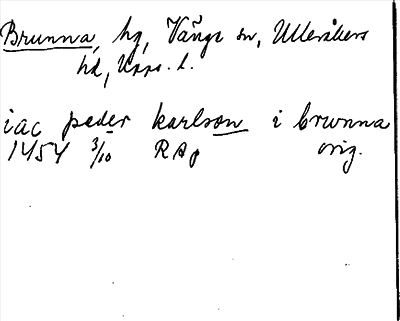 Brunna, hg, Vänge sn, Ulleråkers
hd, Upps. l.
iac peder karlson i brwnna
1454 3/10 RAp orig.